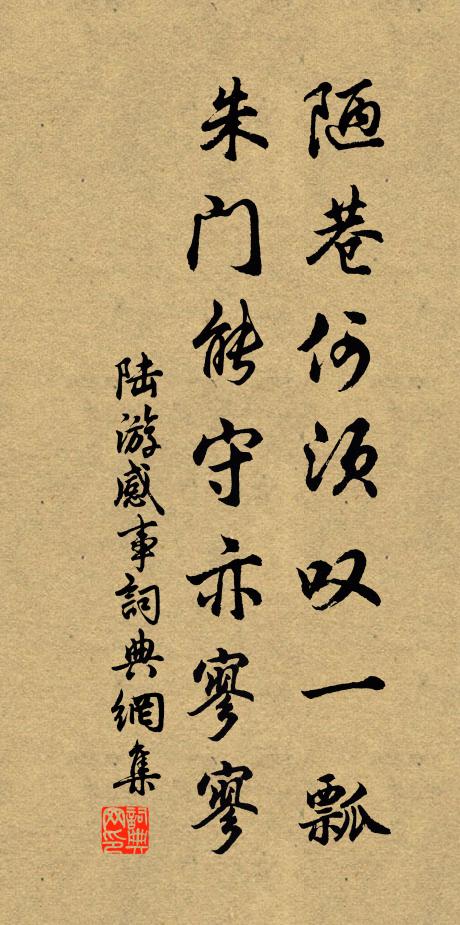 陋巷何须叹一瓢
朱门能守亦寥寥
陆游感事詞典網集
詞典网印